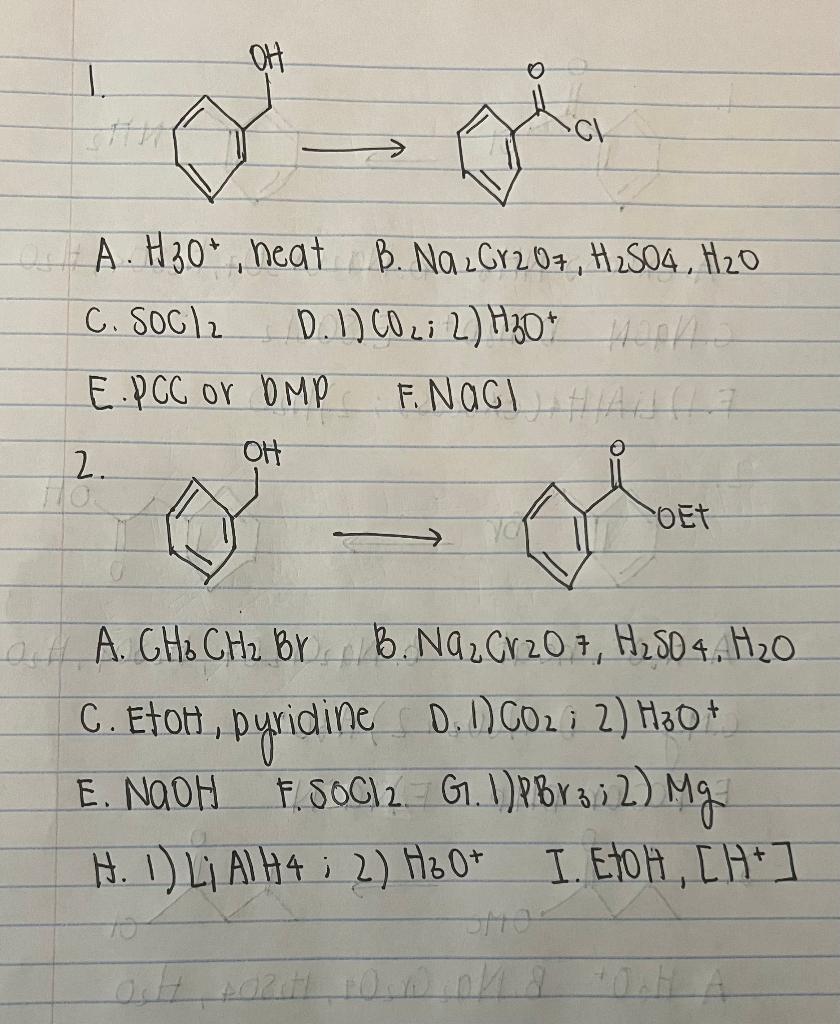 1.
OH
O
Cl
A. H3O+, heat B. Na2Cr2O7, H2SO4, H2O
C. SOCl2 D. 1) CO2; 2) H3O+
E. PCC or DMP F. NaCl
2.
OH
O
OEt
A. CH3CH2Br B. Na2Cr2O7, H2SO4, H2O
C. EtOH, pyridine D. 1) CO2; 2) H3O+
E. NaOH F. SOCl2 G. 1) PBr3; 2) Mg
H. 1) LiAlH4; 2) H3O+ I. EtOH, [H+]